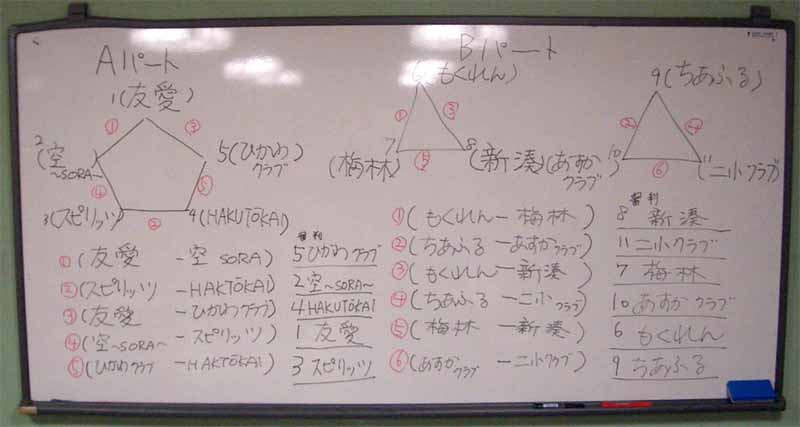 Aパート
1(友愛)
①
③
2(空
~SORA~)
5(ひかわ
クラブ)
④
⑤
3(スピリッツ)
②
4(HAKUTŌKAI)
①(友愛 - 空 SORA)
②(スピリッツ - HAKTŌKAI)
③(友愛 - ひかわクラブ)
④(空~SORA~ - スピリッツ)
⑤(ひかわクラブ - HAKTŌKAI)
審判
5 ひかわクラブ
2 空~SORA~
4 HAKUTOKAI
1 友愛
3 スピリッツ
Bパート
6(もくれん)
①
③
7
(梅林)
⑤
8
(新湊)
9(ちあふる)
②
④
10
(あすか
クラブ)
⑥
11
(二小クラブ)
①(もくれん - 梅林)
②(ちあふる - あすかクラブ)
③(もくれん - 新湊)
④(ちあふる - 二小クラブ)
⑤(梅林 - 新湊)
⑥(あすかクラブ - 二小クラブ)
審判
8 新湊
11 二小クラブ
7 梅林
10 あすかクラブ
6 もくれん
9 ちあふる